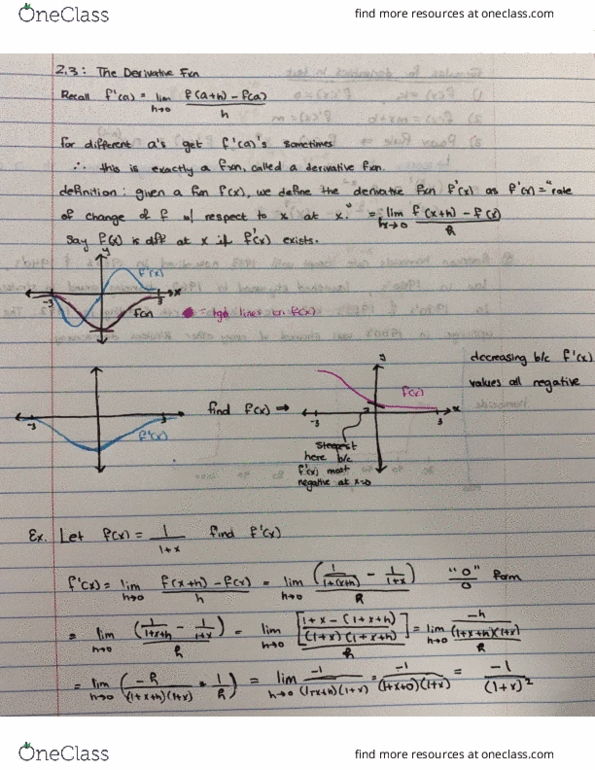 OneClass
find more resources at oneclass.com
2.3: The Derivative Fxn
Recall f'(a) = lim h→0 f(a+h) - f(a) / h
for different a's get f'(a)'s sometimes
∴ this is exactly a fxn, called a derivative fxn.
definition: given a fxn f(x), we define the derivative fxn f'(x) as f'(x) = "rate
of change of f w/ respect to x at x." = lim h→0 f(x+h) - f(x) / h
Say f(x) is diff at x if f'(x) exists.
y
f'(x)
-3
3
x
f(x)
= tgt lines on f(x)
-3
3
f'(x)
find f(x) →
y
f(x)
-3
3
x
steepest
here b/c
f'(x) most
negative at x=0
decreasing b/c f'(x)
values all negative
Ex. Let f(x) = 1 / 1+x find f'(x)
f'(x) = lim h→0 f(x+h) - f(x) / h = lim h→0 (1 / 1+(x+h) - 1 / 1+x) / h "0" / 0 form
= lim h→0 (1 / 1+x+h - 1 / 1+x) / h = lim h→0 [1+x - (1+x+h) / (1+x)(1+x+h)] / h = lim h→0 -h / (1+x+h)(1+x) / h
= lim h→0 (-h / (1+x+h)(1+x) • 1 / h) = lim h→0 -1 / (1+x+h)(1+x) = -1 / (1+x+0)(1+x) = -1 / (1+x)²
OneClass
find more resources at oneclass.com